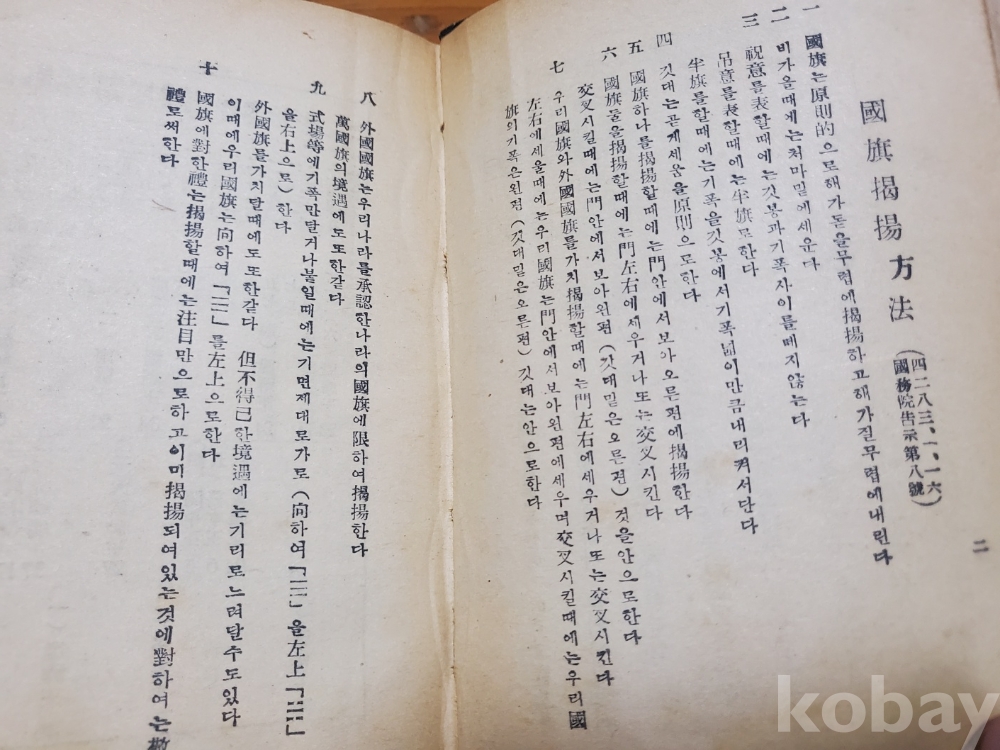 國旗揭揚方法 (四二八三、一、一六 國務院告示第八號)
一 國旗는原則的으로해가돋을무렵에揭揚하고해가질무렵에내린다
二 비가올때에는처마밑에세운다
三 祝意를表할때에는깃봉과기폭사이를떼지않는다
吊意를表할때에는半旗로한다
半旗를할때에는기폭을깃봉에서기폭넓이만큼내리켜서단다
四 깃대는곧게세움을原則으로한다
五 國旗하나를揭揚할때에는門안에서보아오른편에揭揚한다
六 國旗둘을揭揚할때에는門左右에세우거나또는交叉시킨다
交叉시킬때에는門안에서보아왼편(깃대밑은오른편)것을안으로한다
七 우리國旗와外國國旗를가치揭揚할때에는門左右에세우거나또는交叉시킨다
左右에세울때에는우리國旗는門안에서보아왼편에세우며交叉시킬때에는우리國
旗의기폭은왼편(깃대밑은오른편)깃대는안으로한다
二
八 外國國旗는우리나라를承認한나라의國旗에限하여揭揚한다
萬國旗의境遇에도또한같다
九 式場等에기폭만달거나붙일때에는기면제대로가로(向하여「☰」을左上「☷」
을右上으로)한다
外國旗를가치달때에도또한같다 但不得已한境遇에는기리로느려달수도있다
이때에우리國旗는向하여「☰」를左上으로한다
十 國旗에對한禮는揭揚할때에는注目만으로하고이미揭揚되여있는것에對하여는敬
禮로써한다
kobay